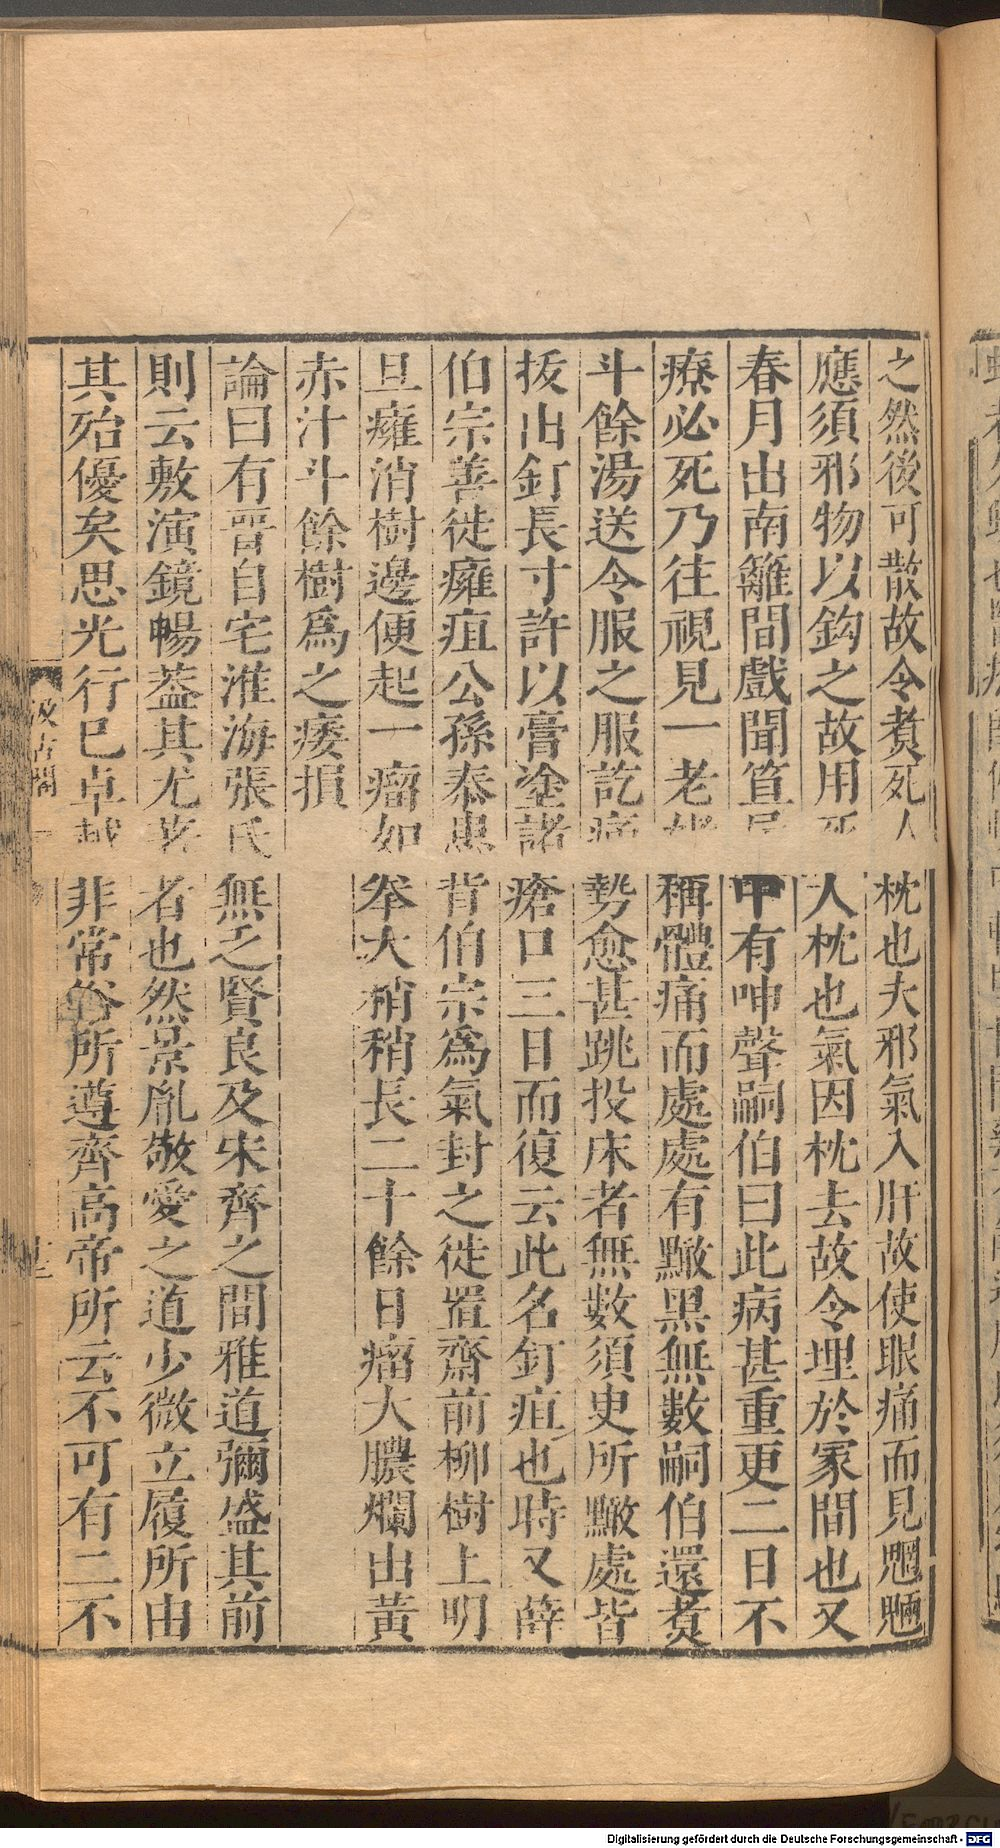 之然後可散故令煑死人枕也夫邪氣入肝故使眼痛而見魍魎
應須邪物以鈎之故用死人枕也氣因枕去故令埋於冢間也又
春月出南籬間戲聞笪屋中有呻聲嗣伯曰此病甚重更二日不
療必死乃往視見一老姥稱體痛而處處有䵳黑無數嗣伯還煑
斗餘湯送令服之服訖痛勢愈甚跳投床者無數須臾所䵳處皆
拔出釘長寸許以膏塗諸瘡口三日而復云此名釘疽也時又薛
伯宗善徙癰疽公孫泰患背伯宗爲氣封之徙置齋前柳樹上明
旦癰消樹邊便起一瘤如拳大稍稍長二十餘日瘤大膿爛出黃
赤汁斗餘樹爲之痿損
論曰有晉自宅淮海張氏無乏賢良及宋齊之間雅道彌盛其前
則云敷演鏡暢葢其尤著者也然景胤敬愛之道少微立履所由
其殆優矣思光行已卓越非常俗所遵齊高帝所云不可有二不
汲古閣
Digitalisierung gefördert durch die Deutsche Forschungsgemeinschaft - DFG